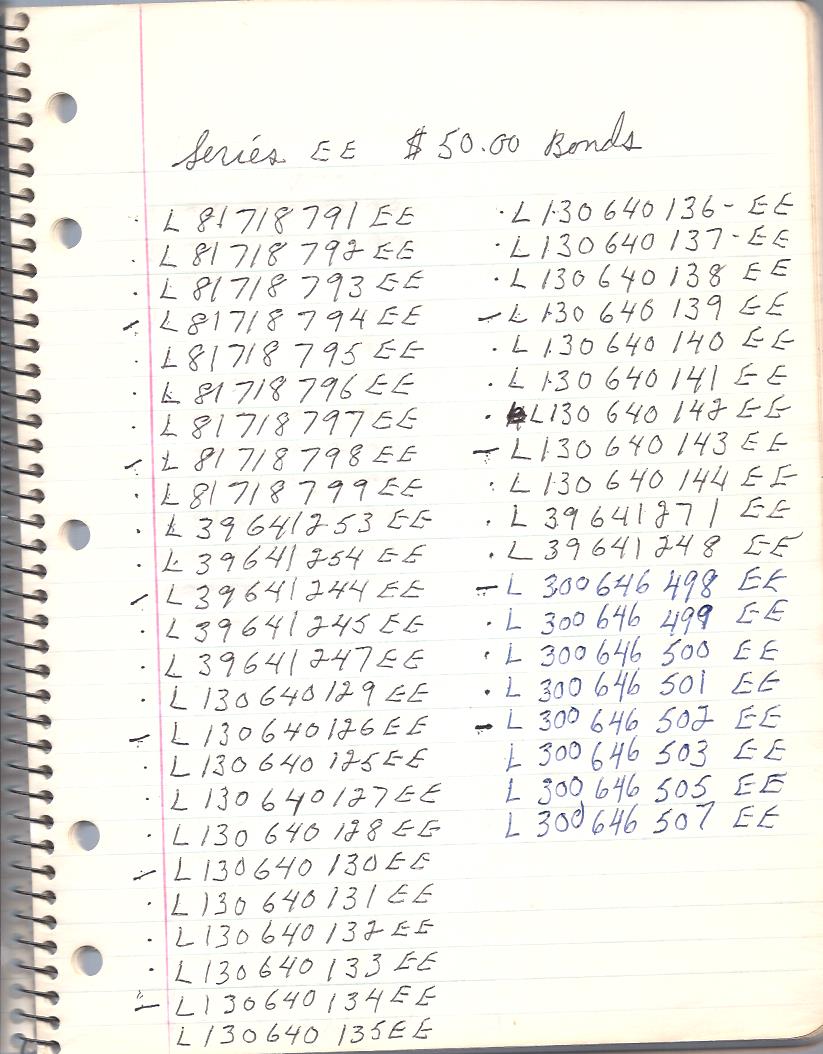 Series EE $50.00 Bonds
L 81718791 EE
L 81718792 EE
L 81718793 EE
L 81718794 EE
L 81718795 EE
L 81718796 EE
L 81718797 EE
L 81718798 EE
L 81718799 EE
L 39641253 EE
L 39641254 EE
L 39641244 EE
L 39641245 EE
L 39641247 EE
L 130640129 EE
L 130640126 EE
L 130640125 EE
L 130640127 EE
L 130 640 128 EE
L 130640 130 EE
L 130 640 131 EE
L 130 640 132 EE
L 130640 133 EE
L 130640 134 EE
L 130640 135 EE
L 130 640 136 - EE
L 130 640 137 - EE
L 130 640 138 EE
L 130 640 139 EE
L 130 640 140 EE
L 130 640 141 EE
L 130 640 142 EE
L 130 640 143 EE
L 130 640 144 EE
L 39641271 EE
L 39641248 EE
L 300646 498 EE
L 300 646 499 EE
L 300 646 500 EE
L 300 646 501 EE
L 300 646 502 EE
L 300 646 503 EE
L 300 646 505 EE
L 300 646 507 EE